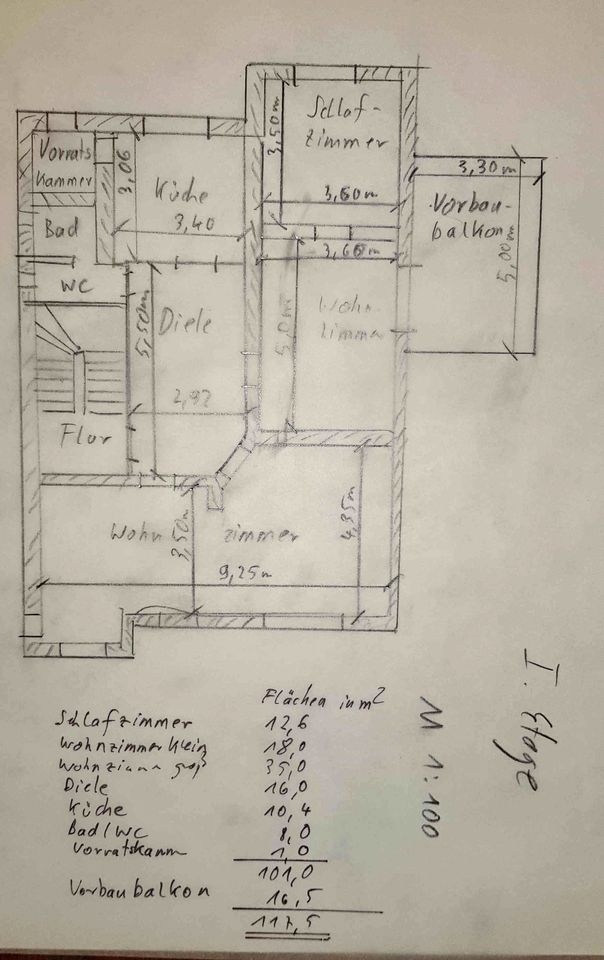 Schlaf-
zimmer
3,50m
3,60m
Vorrats
Kammer
3,06
Küche
3,40
3,30m
Vorbau-
balkon
5,00m
Bad
WC
3,60m
Wohn
zimmer
5,0m
5,50m
Diele
2,92
Flur
Wohn
zimmer
3,50m
4,35m
9,25m
I. Etage
M 1:100
Flächen in m²
Schlafzimmer 12,6
Wohnzimmer Klein 18,0
Wohnzimm groß 35,0
Diele 16,0
Küche 10,4
Bad/WC 8,0
Vorratskamm 1,0
101,0
Vorbaubalkon 16,5
117,5